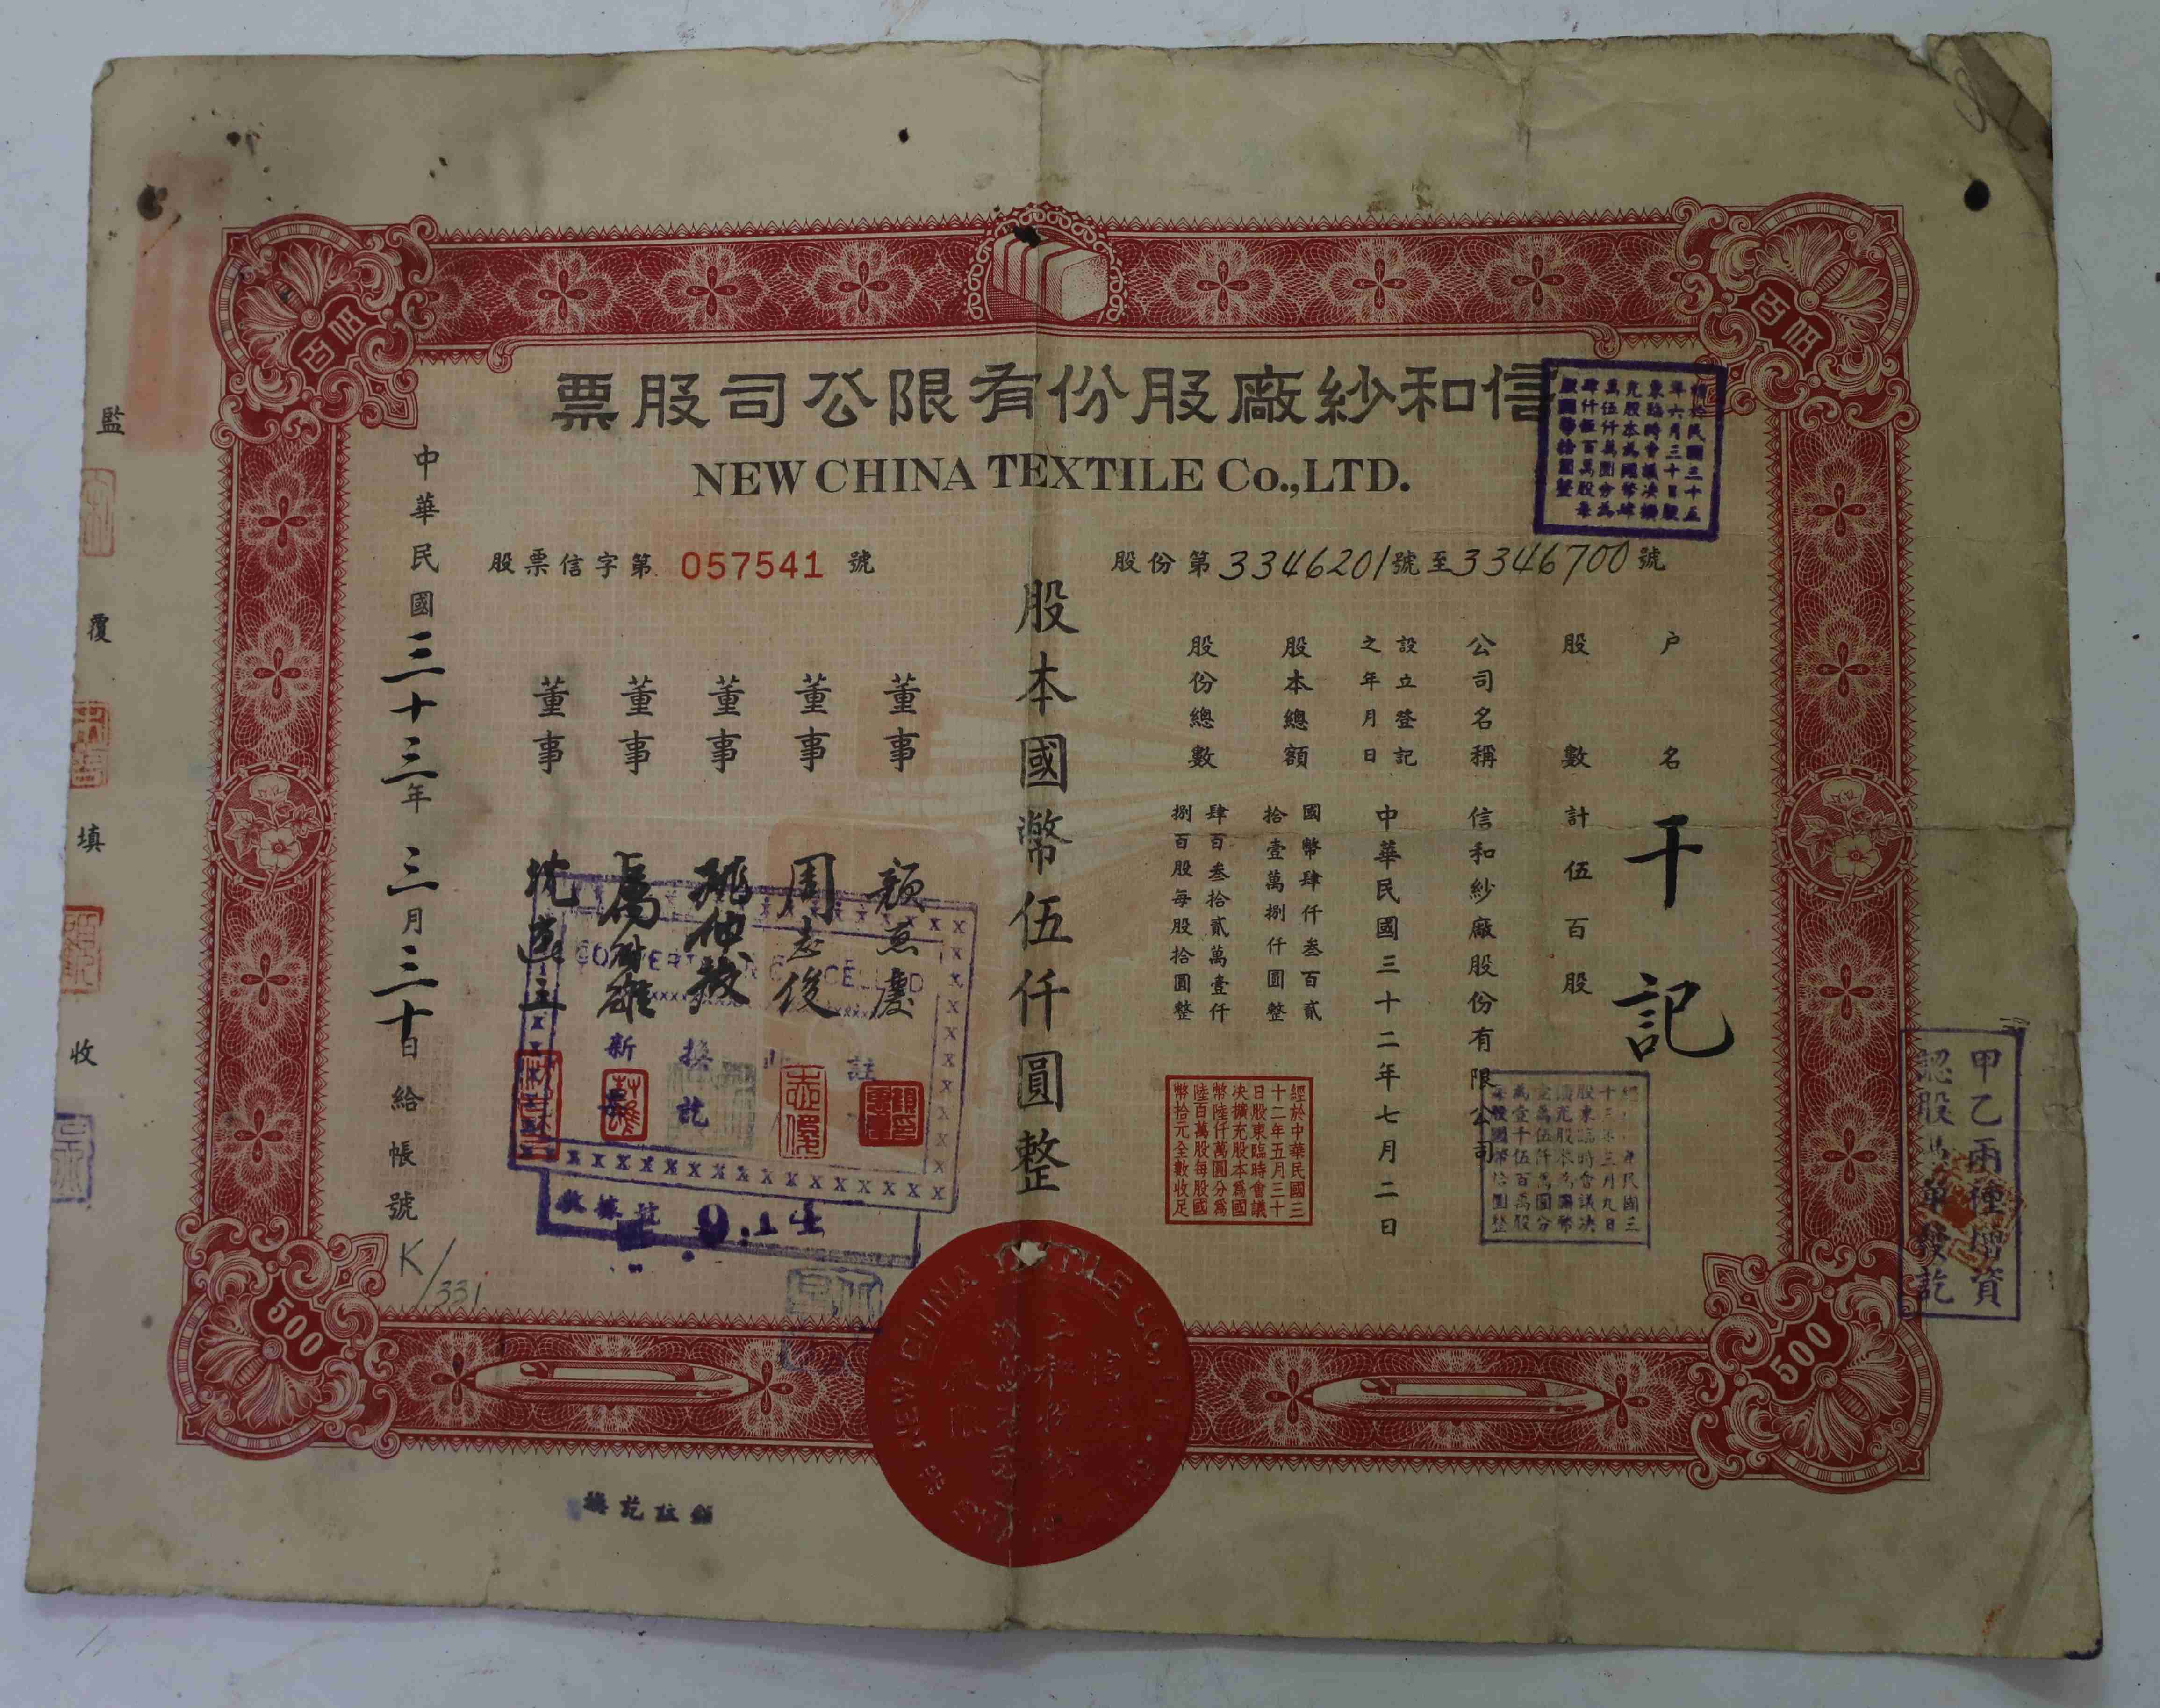 信和紗廠股份有限公司股票
NEW CHINA TEXTILE Co.,LTD.
伍百
伍百
股份第3346201號至3346700號
股票信字第 057541 號
戶名 干記
股數 計伍百股
公司名稱 信和紗廠股份有限公司
設立登記之年月日 中華民國三十二年七月二日
股本總額 國幣肆仟叁百貳拾壹萬捌仟圓整
股份總數 肆百叁拾貳萬壹仟捌百股每股拾圓整
股本國幣伍仟圓整
董事 顏惠慶
董事 周志俊
董事
董事
董事
中華民國三十三年三月三十日給
帳號
K/331
經於中華民國三
十二年五月三十
日股東臨時會議
決擴充股本為國
幣陸仟萬圓分為
陸百萬股每股國
幣拾元全數收足
民國三十五
年六月三十日股
東臨時會議決擴
充股本為國幣肆
萬伍仟萬圓分為
肆仟伍百萬股每
股國幣拾圓整
民國三
十三年三月九日
股東臨時會議決
擴充股本為國幣
壹萬伍仟萬圓分
為壹千伍百萬股
每股國幣拾圓整
甲乙兩種增資
認股
發訖
新
換
訖
註
收據號
NEW CHINA TEXTILE CO., LTD.
500
500
監
覆
填
收
銷註訖換